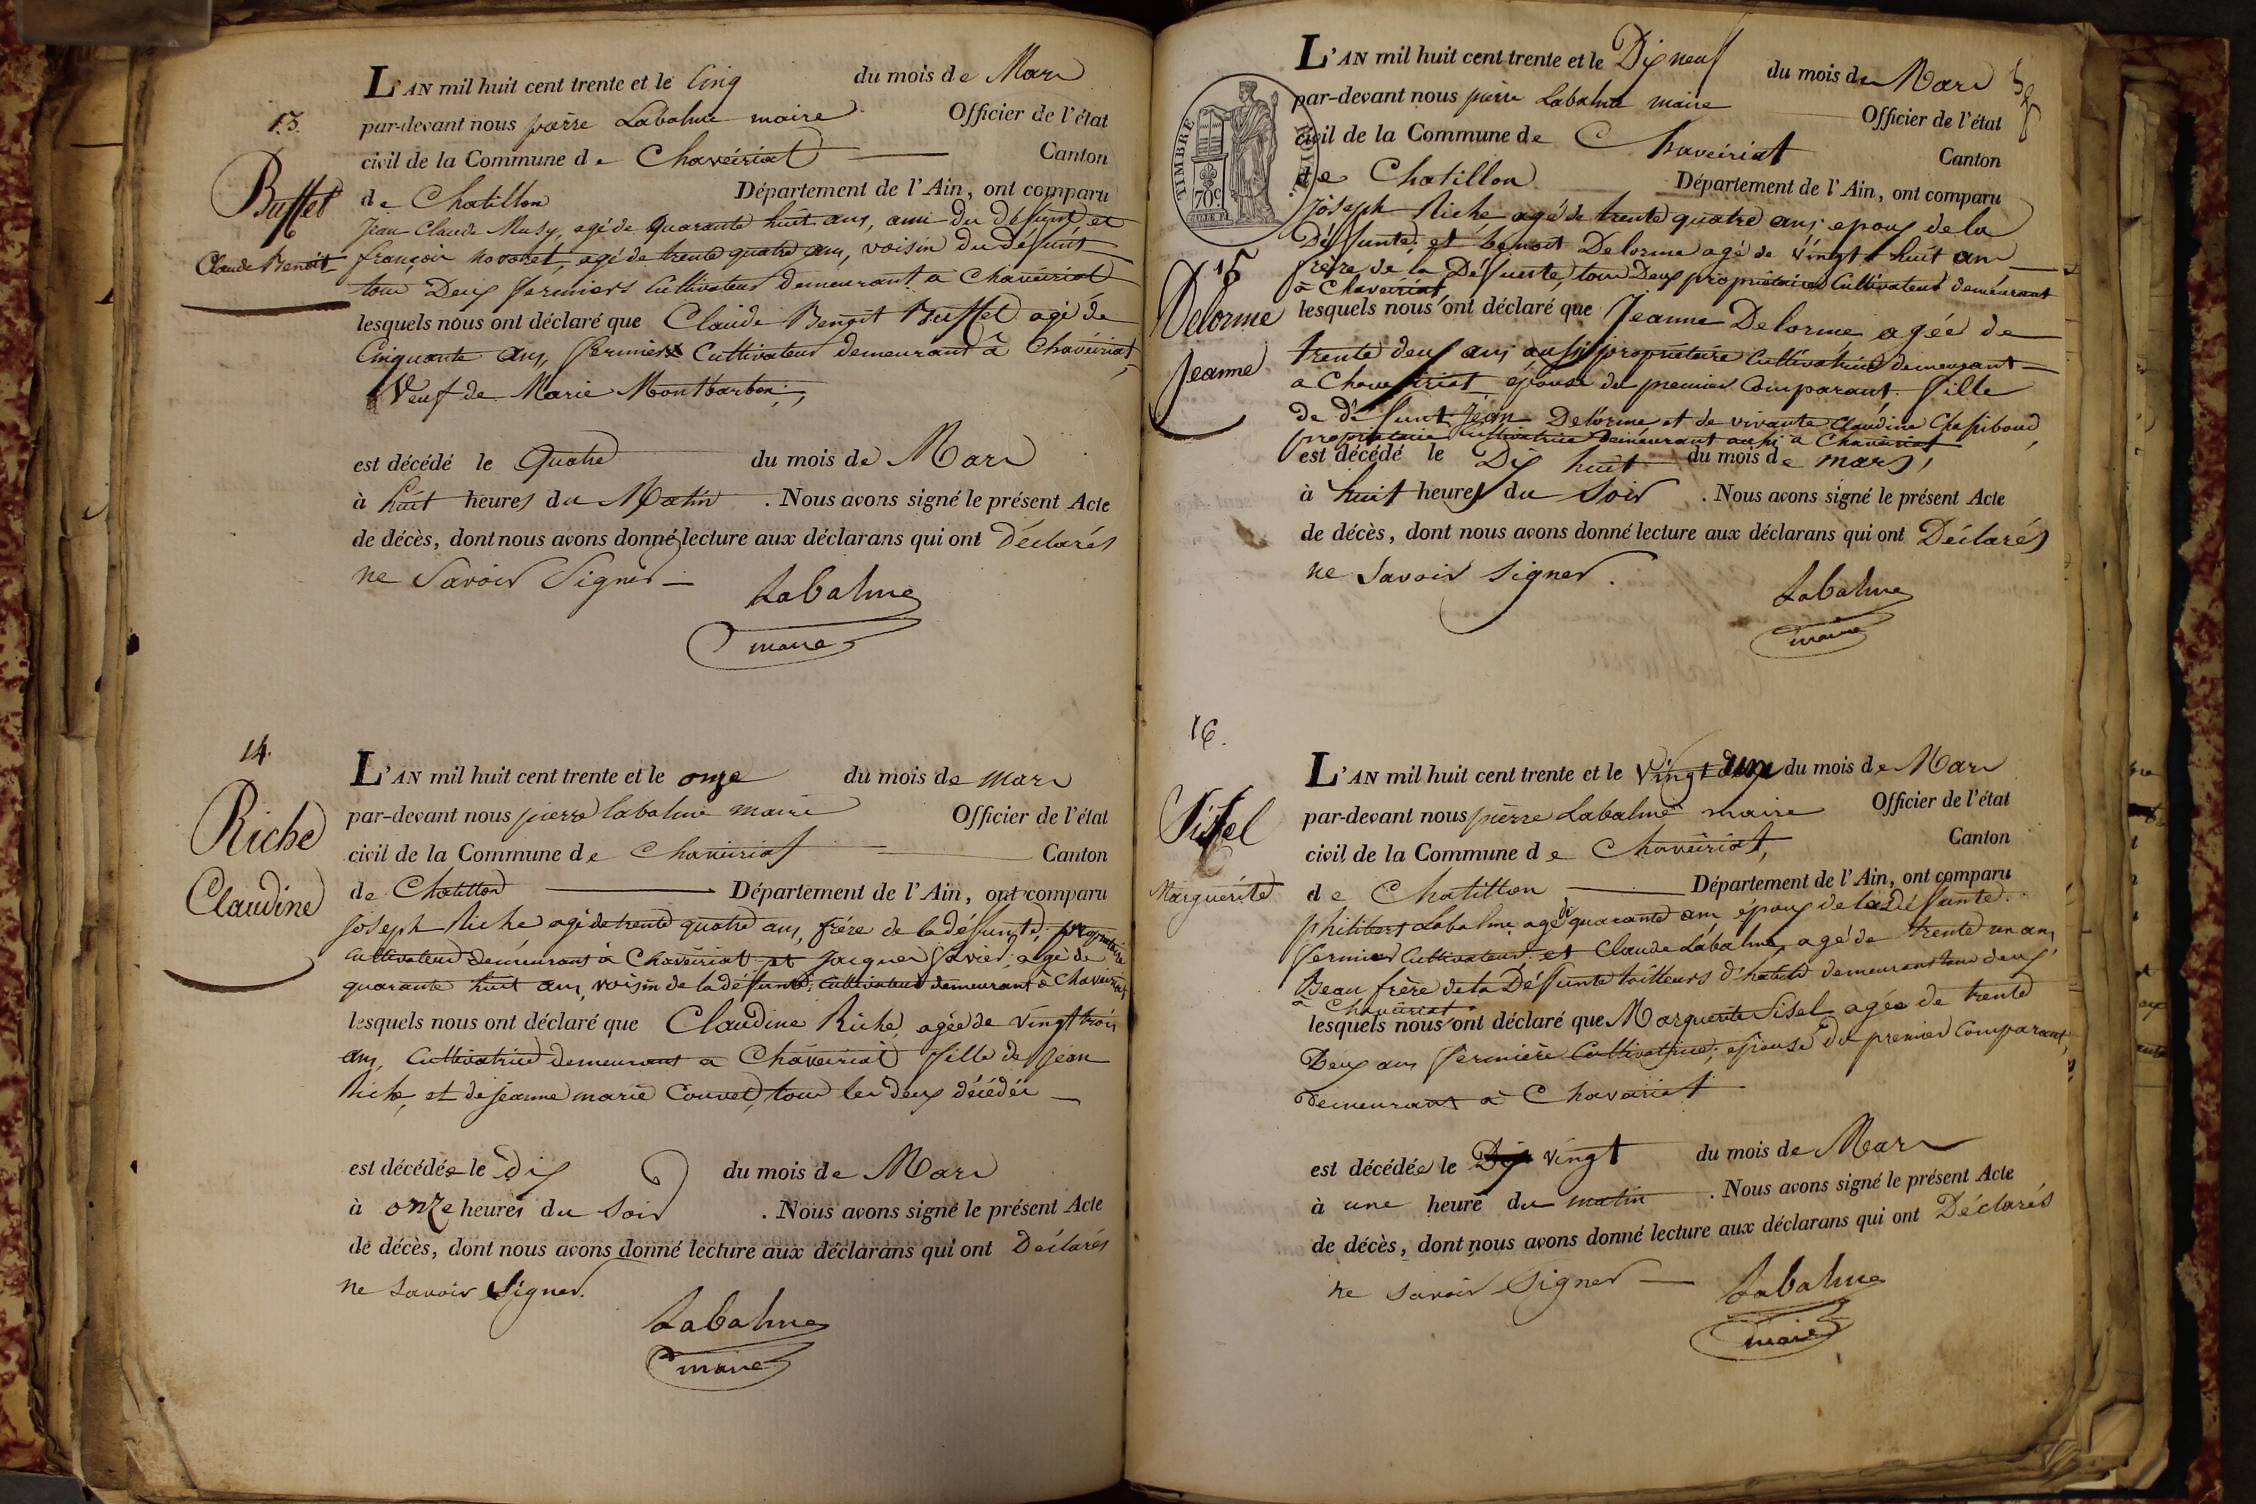 13.
Buffet
Claude Benoît
L'AN mil huit cent trente et le Cinq du mois de Mars
par-devant nous pierre Labalme maire Officier de l'état
civil de la Commune de Chaveiriat Canton
de Chatillon Département de l'Ain, ont comparu
Jean Claude Musy, agé de quarante huit ans, ami du défunt et
françois agé de trente quatre ans, voisin du défunt
tous Deux fermiers Cultivateurs demeurant à Chaveiriat
lesquels nous ont déclaré que Claude Benoit Buffet agé de
Cinquante ans, fermier Cultivateur demeurant à Chaveiriat,
Veuf de Marie Montbarbon;
est décédé le Quatre du mois de Mars
à huit heures du Matin . Nous avons signé le présent Acte
de décès, dont nous avons donné lecture aux déclarans qui ont Déclarés
ne Savoir Signer
Labalme
maire
14.
Riche
Claudine
L'AN mil huit cent trente et le onze du mois de mars
par-devant nous pierre labalme maire Officier de l'état
civil de la Commune de Chaveiriat Canton
de Chatillon Département de l'Ain, ont comparu
Joseph Riche agé de trente quatre ans, frére de la défunte, propriétaire
Cultivateur demeurant à Chaveiriat et Jacques agé de
quarante huit ans, voisin de la défunte, Cultivateur demeurant à Chaveiriat
lesquels nous ont déclaré que Claudine Riche agée de vingt trois
ans, Cultivatrice demeurant a Chaveiriat fille de Jean
Riche, et de jeanne marie Couvet, tous les deux décédés
est décédée le dix du mois de Mars
à onze heures du Soir . Nous avons signé le présent Acte
de décès, dont nous avons donné lecture aux déclarans qui ont Déclarés
ne savoir Signer.
Labalme
maire
TIMBRE ROYAL
70c
15
Delorme
Jeanne
L'AN mil huit cent trente et le Dix neuf du mois de Mars
par-devant nous pierre Labalme maire Officier de l'état
civil de la Commune de Chaveiriat Canton
de Chatillon Département de l'Ain, ont comparu
Joseph Riche agé de trente quatre ans, epoux de la
Défunte, et benoit Delorme agé de vingt huit ans
frère de la Défunte, tous Deux propriétaires Cultivateurs demeurant
à Chaveiriat
lesquels nous ont déclaré que Jeanne Delorme, agée de
trente deux ans aussi propriétaire Cultivatrice demeurant
a Chaveiriat, épouse du premier Comparant. fille
de défunt Jean Delorme et de vivante Claudine
propriétaire Cultivatrice demeurant aussi à Chaveiriat
est décédé le Dix huit du mois de mars,
à huit heures du Soir . Nous avons signé le présent Acte
de décès, dont nous avons donné lecture aux déclarans qui ont Déclarés
ne Savoir Signer.
Labalme
maire
16.
Sisel
Marguerite
L'AN mil huit cent trente et le Vingt du mois de Mars
par-devant nous pierre Labalme maire Officier de l'état
civil de la Commune de Chaveiriat, Canton
de Chatillon Département de l'Ain, ont comparu
philibert Labalme agé de quarante ans époux de la Défunte.
fermier Cultivateur et Claude Labalme, agé de trente un ans,
Beau frère de la Défunte tailleurs d'habits demeurant tous deux
à Chaveiriat.
lesquels nous ont déclaré que Marguerite Sisel agée de trente
Deux ans fermière Cultivatrice, épouse du premier Comparant,
demeurant a Chaveiriat
est décédée le Dix vingt du mois de Mars
à une heure du matin . Nous avons signé le présent Acte
de décès, dont nous avons donné lecture aux déclarans qui ont Déclarés
ne savoir Signer
Labalme
maire